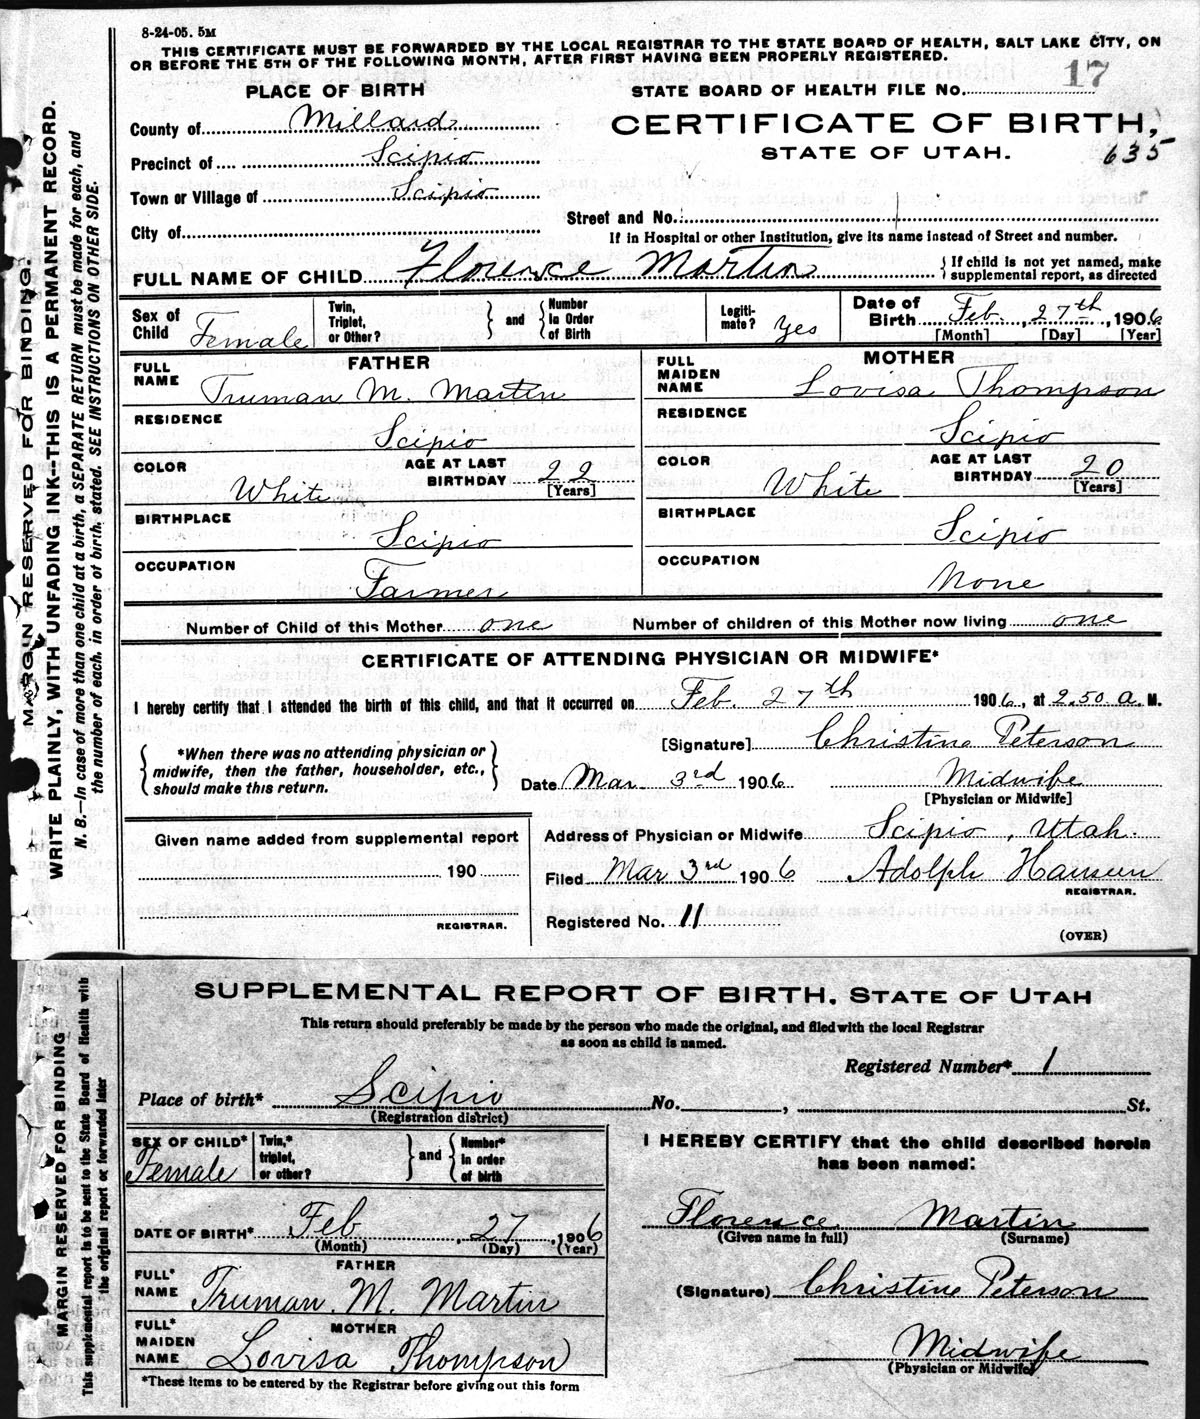 8-24-05. 5M
THIS CERTIFICATE MUST BE FORWARDED BY THE LOCAL REGISTRAR TO THE STATE BOARD OF HEALTH, SALT LAKE CITY, ON
OR BEFORE THE 5TH OF THE FOLLOWING MONTH, AFTER FIRST HAVING BEEN PROPERLY REGISTERED.
PLACE OF BIRTH
STATE BOARD OF HEALTH FILE No. 17
County of Millard
CERTIFICATE OF BIRTH,
Precinct of Scipio
STATE OF UTAH.
635
Town or Village of Scipio
Street and No.:
City of
If in Hospital or other Institution, give its name instead of Street and number.
FULL NAME OF CHILD Florence Martin
{ If child is not yet named, make
supplemental report, as directed
Sex of Child Female
Twin, Triplet, or Other? } and { Number In Order of Birth
Legiti-mate? Yes
Date of Birth Feb. 27th, 1906
[Month] [Day] [Year]
FATHER
FULL NAME Truman M. Martin
RESIDENCE
Scipio
COLOR White
AGE AT LAST BIRTHDAY 22
[Years]
BIRTHPLACE
Scipio
OCCUPATION
Farmer
MOTHER
FULL MAIDEN NAME Lovisa Thompson
RESIDENCE
Scipio
COLOR White
AGE AT LAST BIRTHDAY 20
[Years]
BIRTHPLACE
Scipio
OCCUPATION
None
Number of Child of this Mother one Number of children of this Mother now living one
CERTIFICATE OF ATTENDING PHYSICIAN OR MIDWIFE*
I hereby certify that I attended the birth of this child, and that it occurred on Feb. 27th 1906, at 2.50 a. M.
[Signature] Christine Peterson
{ *When there was no attending physician or
midwife, then the father, householder, etc.,
should make this return. }
Date Mar 3rd 1906 Midwife
[Physician or Midwife]
Given name added from supplemental report
190
REGISTRAR.
Address of Physician or Midwife Scipio, Utah.
Filed Mar 3rd 1906 Adolph Hansen
REGISTRAR.
Registered No. 11
(OVER)
MARGIN RESERVED FOR BINDING
WRITE PLAINLY, WITH UNFADING INK--THIS IS A PERMANENT RECORD.
N. B.—In case of more than one child at a birth, a SEPARATE RETURN must be made for each, and
the number of each, in order of birth, stated. SEE INSTRUCTIONS ON OTHER SIDE.
SUPPLEMENTAL REPORT OF BIRTH, STATE OF UTAH
This return should preferably be made by the person who made the original, and filed with the local Registrar
as soon as child is named.
Registered Number* 1
Place of birth* Scipio No. , St.
(Registration district)
SEX OF CHILD* Female
Twin,* triplet, or other? } and { Number* in order of birth
DATE OF BIRTH* Feb, 27, 1906
(Month) (Day) (Year)
FATHER
FULL* NAME Truman. M. Martin
MOTHER
FULL* MAIDEN NAME Lovisa Thompson
*These items to be entered by the Registrar before giving out this form
I HEREBY CERTIFY that the child described herein
has been named:
Florence Martin
(Given name in full) (Surname)
(Signature) Christine Peterson
Midwife
(Physician or Midwife)
MARGIN RESERVED FOR BINDING
This supplemental report is to be sent to the State Board of Health with
the original report or forwarded later